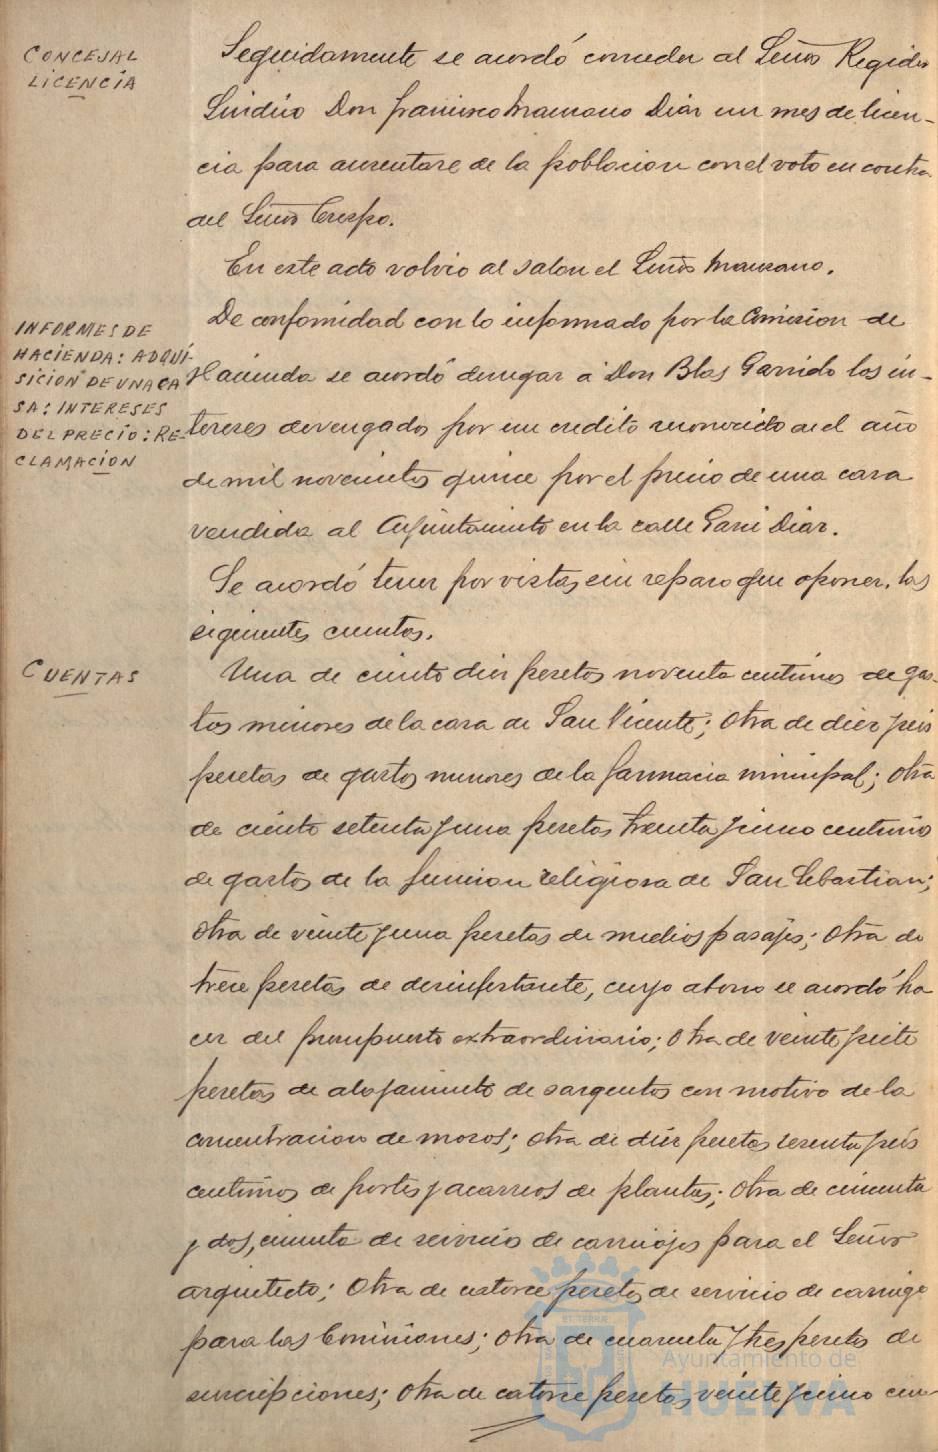 CONCEJAL
LICENCIA
Seguidamente se acordó conceder al Señor Regidor
Sindico Don Francisco Manzano Diaz un mes de licen-
cia para ausentarse de la poblacion con el voto en contra
del Señor Crespo.
En este acto volvio al salon el Señor Manzano.
INFORMES DE
HACIENDA: ADQUI-
SICION DE UNA CA
SA: INTERESES
DEL PRECIO: RE-
CLAMACION
De conformidad con lo informado por la Comision de
Hacienda se acordó denegar á Don Blas Garrido los in-
tereses devengados por un credito reconocido en el año
de mil novecientos quince por el precio de una casa
vendida al Ayuntamiento en la calle Garci Diaz.
Se acordó tener por vistas, sin reparo que oponer, las
siguientes cuentas.
CUENTAS
Una de ciento diez pesetas noventa centimos de gas-
tos menores de la casa de San Vicente; Otra de diez y seis
pesetas de gastos menores de la farmacia municipal; Otra
de ciento setenta y una pesetas treinta y cinco centimos
de gastos de la funcion religiosa de San Sebastian;
Otra de veinte y una pesetas de medios pasajes; Otra de
trece pesetas de desinfectante, cuyo abono se acordó ha
cer del presupuesto extraordinario; Otra de veinte y siete
pesetas de alojamiento de sargentos con motivo de la
concentracion de mozos; Otra de diez pesetas sesenta y seis
centimos de portes y acarreos de plantas; Otra de cincuenta
y dos, cincuenta de servicio de carruajes para el Señor
arquitecto; Otra de catorce pesetas de servicio de carruaje
para las Comisiones; Otra de cuarenta y tres pesetas de
suscripciones; Otra de catorce pesetas veinte y cinco cen
Ayuntamiento de
HUELVA